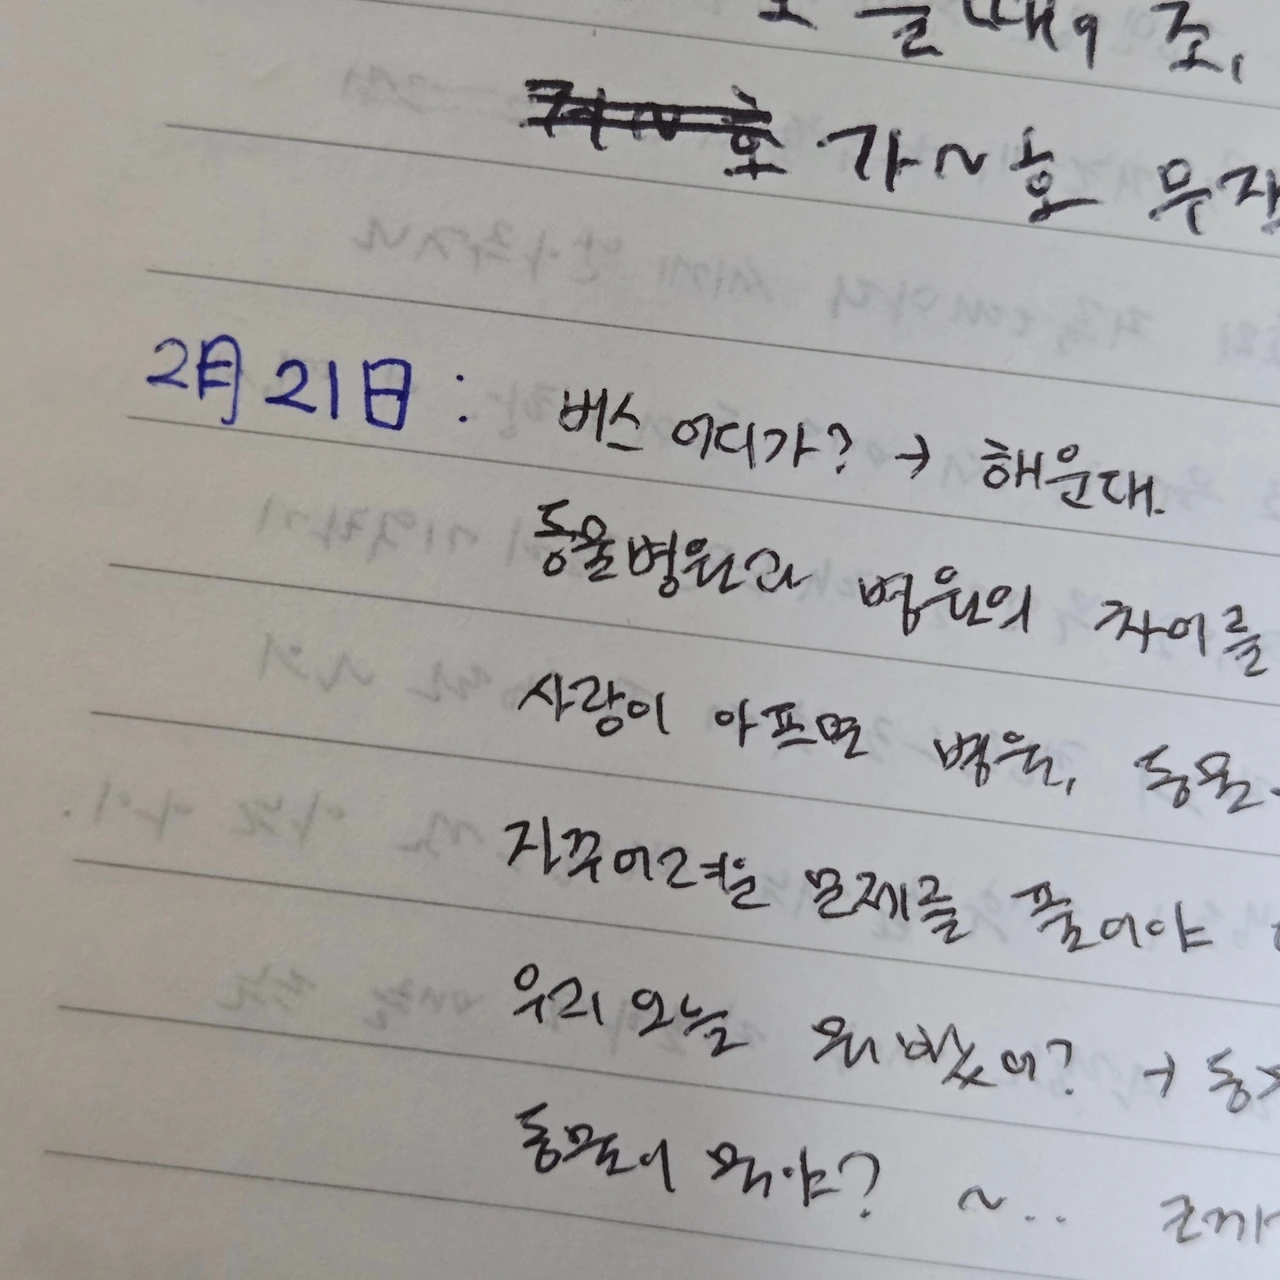 가~호
2月21日 : 버스 어디가? → 해운대.
동물병원과 병원의 차이를
사람이 아프면 병원, 동물
자꾸 어려운 문제를 풀어야
우리 오늘 뭐 봤어? →
동물이 뭐야? ~..